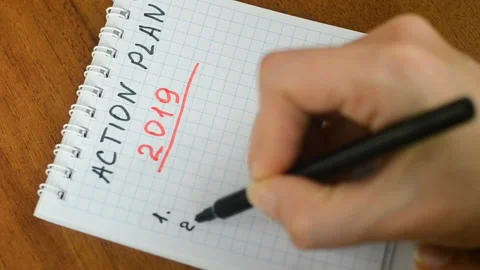 ACTION PLAN
2019
1.
2